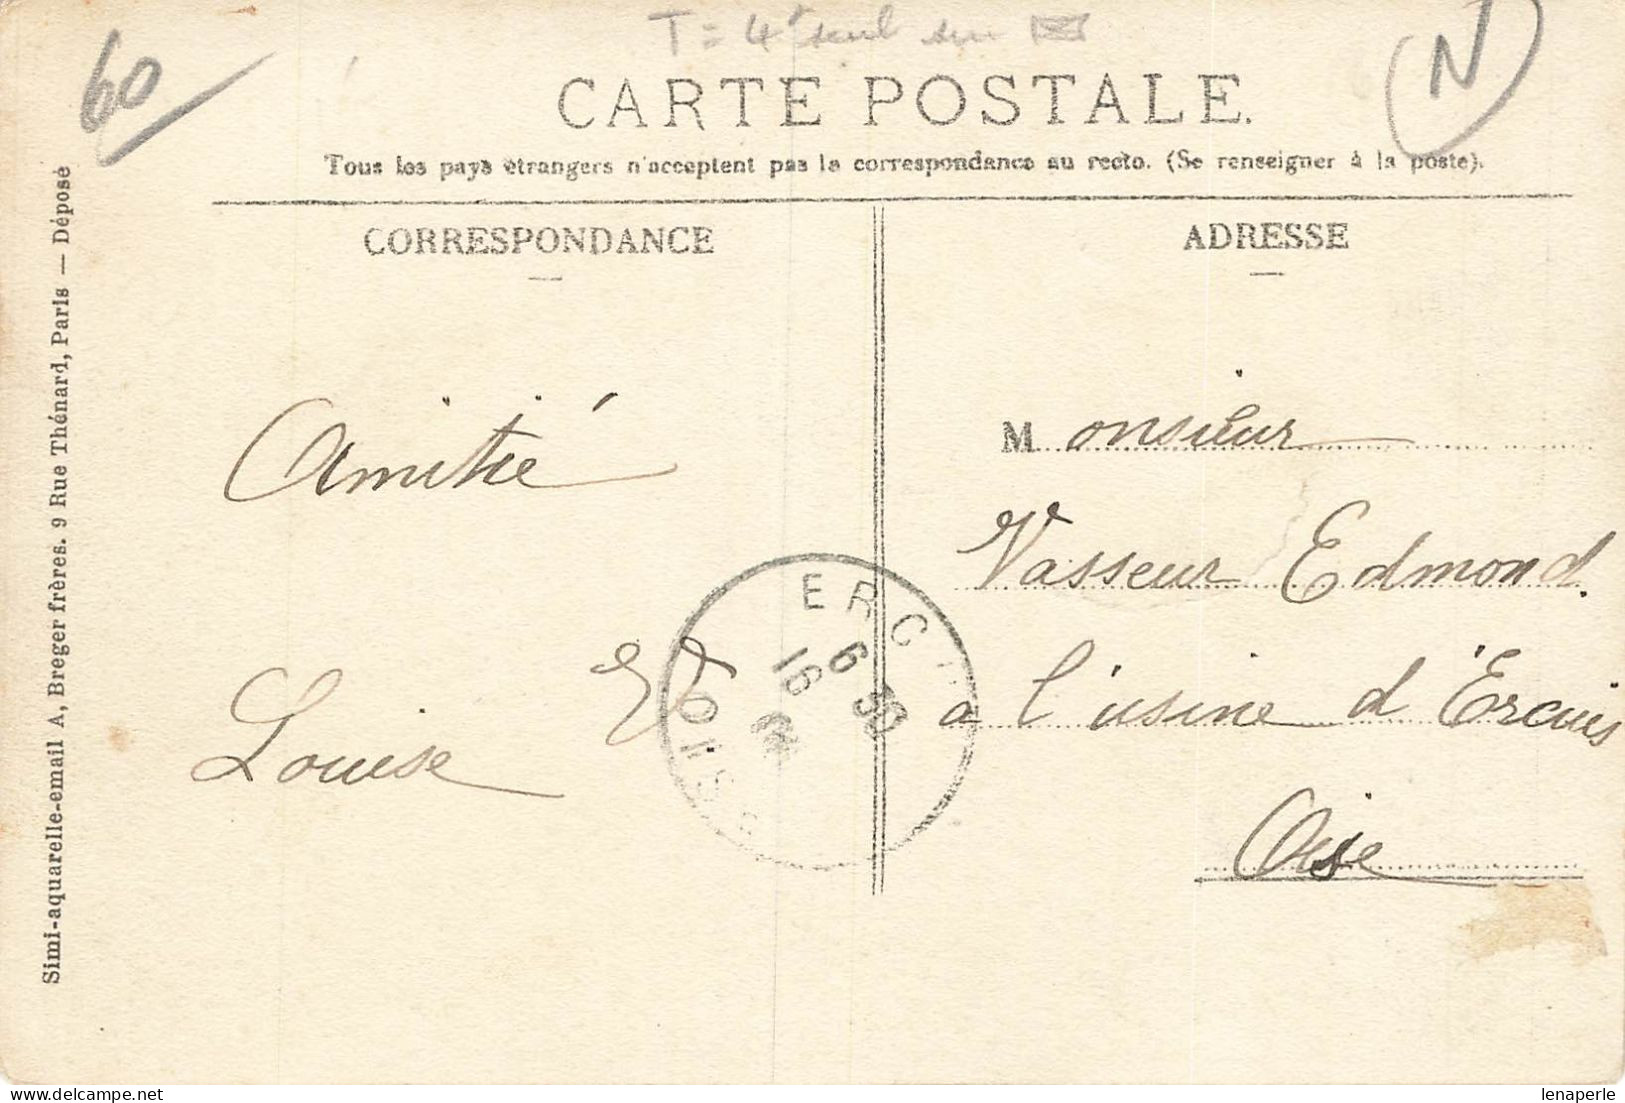 60
T = 4 seul sur
N
CARTE POSTALE.
Tous les pays étrangers n'acceptent pas la correspondance au recto. (Se renseigner à la poste).
CORRESPONDANCE
ADRESSE
Simi-aquarelle-email A, Breger frères. 9 Rue Thénard, Paris — Déposé
Amitié
Louise
Monsieur
Vasseur Edmond.
a l'usine d'Ercuis
Oise
6 30
16
lenaperle